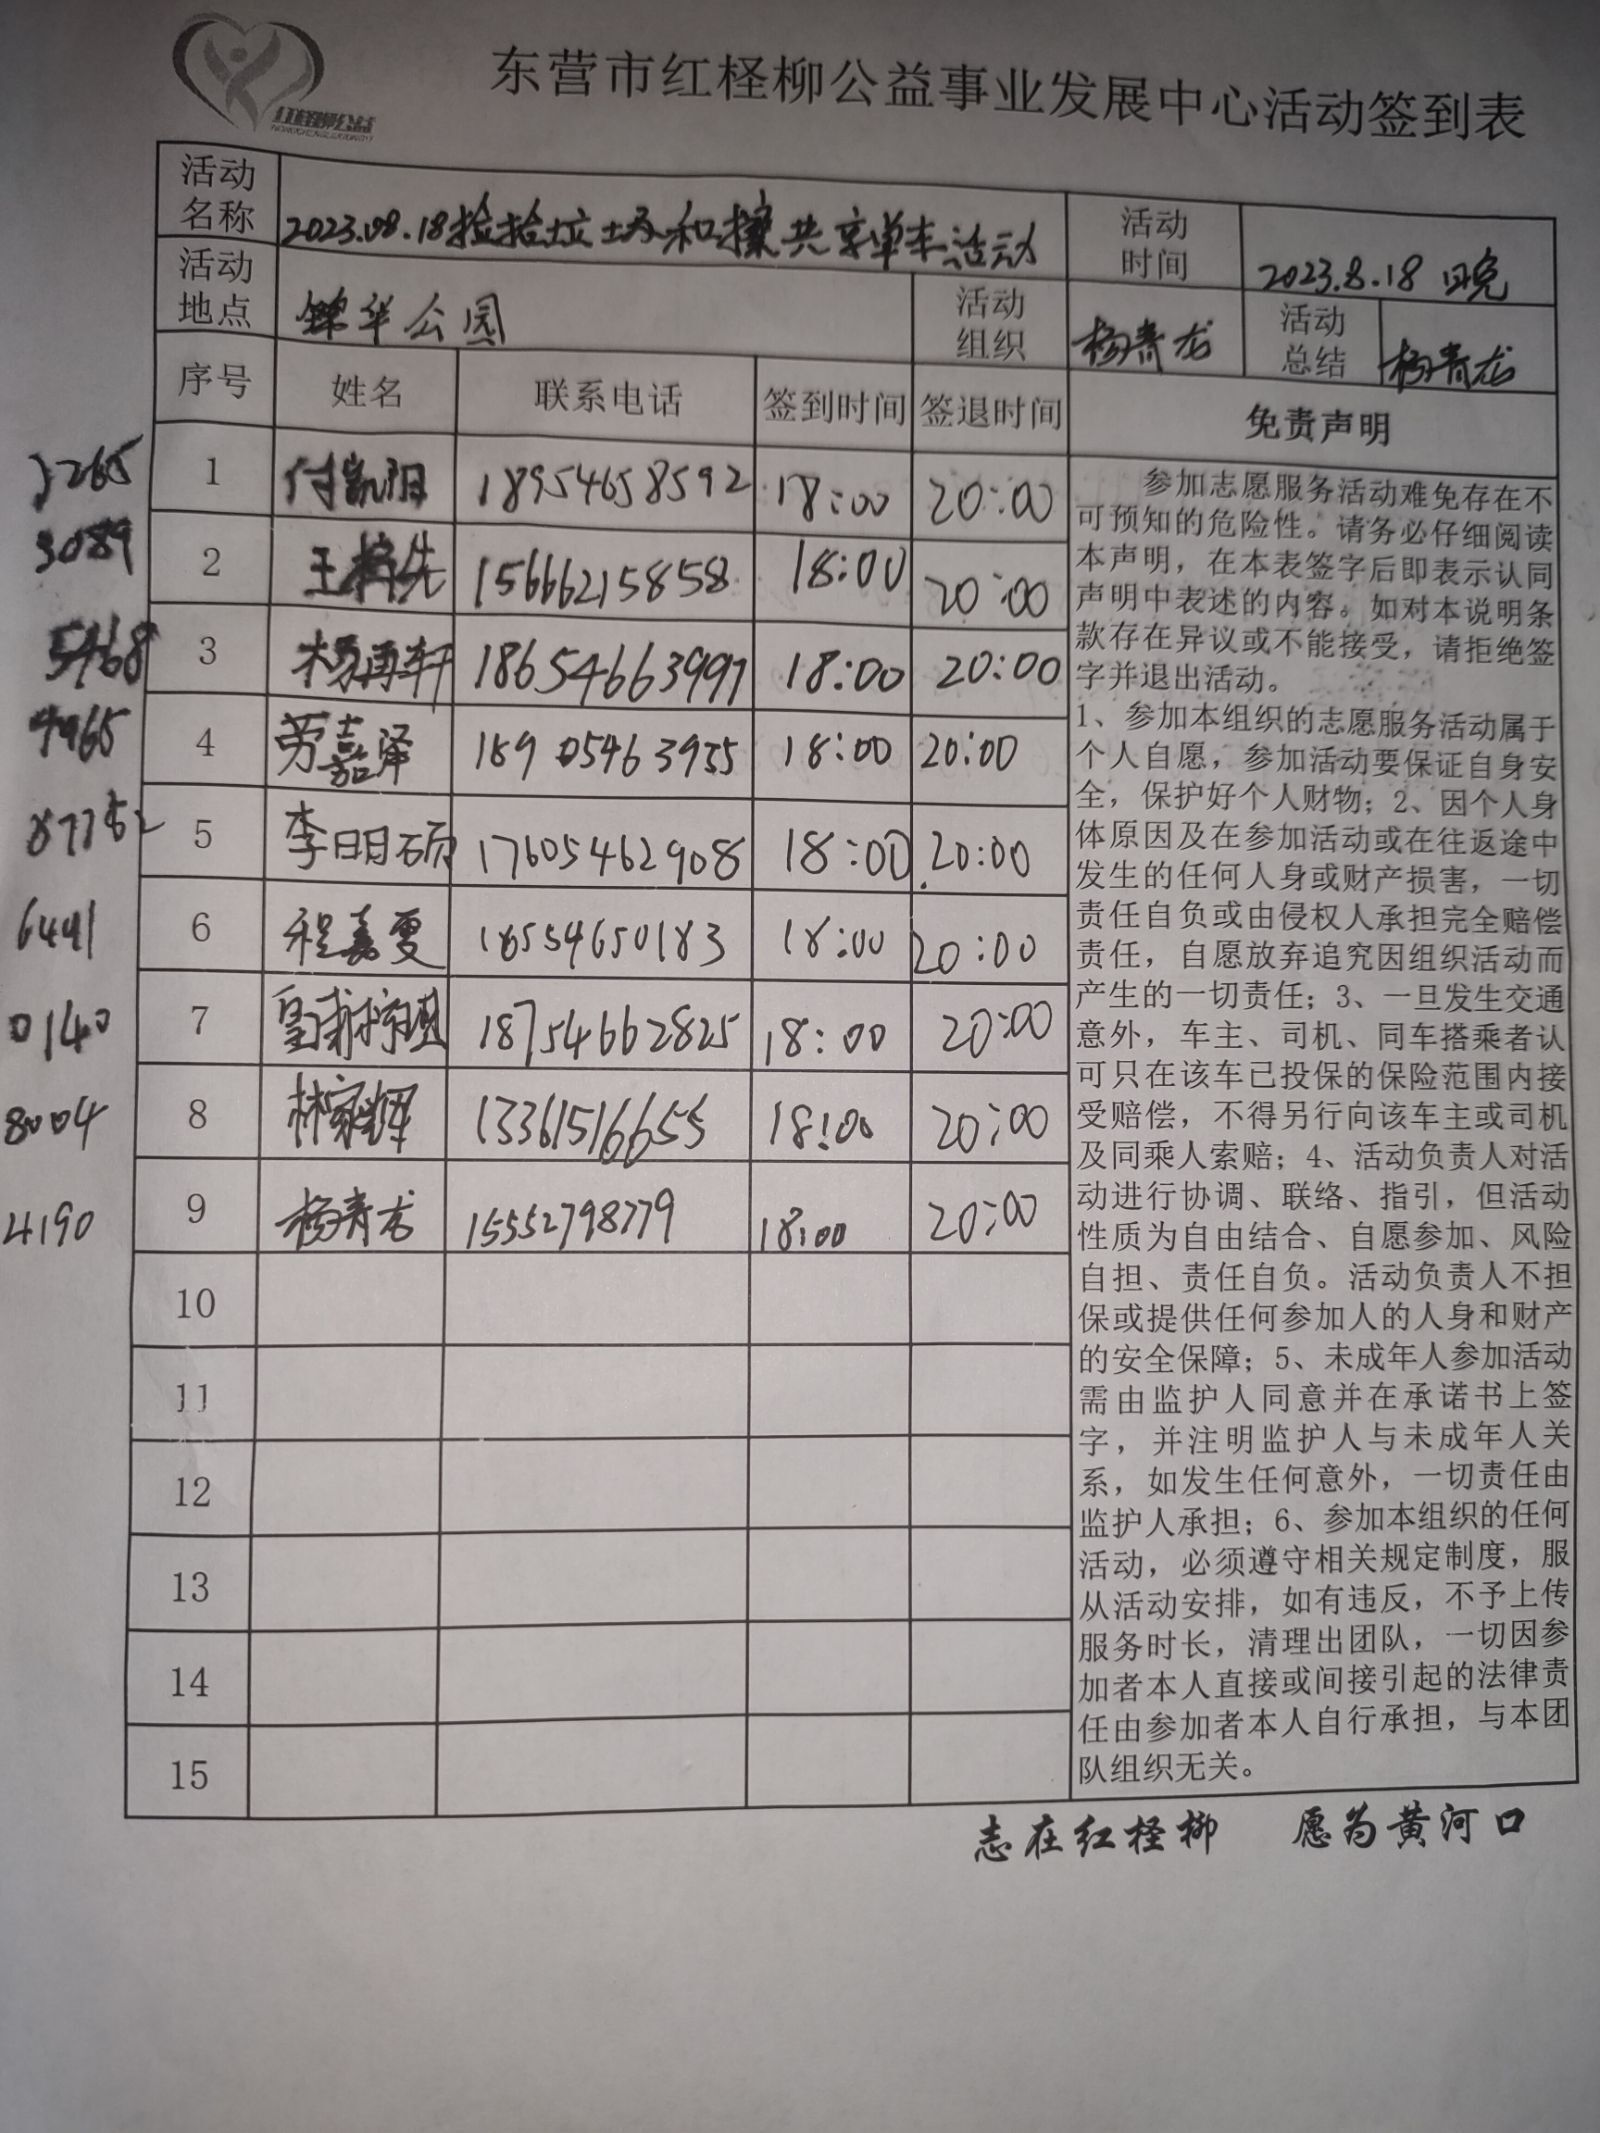 红柽柳公益
东营市红柽柳公益事业发展中心活动签到表
活动名称 2023.08.18捡拾垃圾和擦共享单车活动 活动时间 2023.8.18日晚
活动地点 锦华公园 活动组织 杨青龙 活动总结 杨青龙
序号 姓名 联系电话 签到时间 签退时间 免责声明
3265 1 付凯阳 18954658592 18:00 20:00
3089 2 王梓先 15666215858 18:00 20:00
5468 3 杨再轩 18654663997 18:00 20:00
4965 4 劳嘉泽 18905463955 18:00 20:00
5 李明硕 17605462908 18:00 20:00
6441 6 程嘉雯 18554650183 18:00 20:00
0140 7 皇甫 18754662825 18:00 20:00
8004 8 林家辉 13361516655 18:00 20:00
4190 9 杨青龙 15552798779 18:00 20:00
10
11
12
13
14
15
参加志愿服务活动难免存在不
可预知的危险性。请务必仔细阅读
本声明，在本表签字后即表示认同
声明中表述的内容。如对本说明条
款存在异议或不能接受，请拒绝签
字并退出活动。
1、参加本组织的志愿服务活动属于
个人自愿，参加活动要保证自身安
全，保护好个人财物；2、因个人身
体原因及在参加活动或在往返途中
发生的任何人身或财产损害，一切
责任自负或由侵权人承担完全赔偿
责任，自愿放弃追究因组织活动而
产生的一切责任；3、一旦发生交通
意外，车主、司机、同车搭乘者认
可只在该车已投保的保险范围内接
受赔偿，不得另行向该车主或司机
及同乘人索赔；4、活动负责人对活
动进行协调、联络、指引，但活动
性质为自由结合、自愿参加、风险
自担、责任自负。活动负责人不担
保或提供任何参加人的人身和财产
的安全保障；5、未成年人参加活动
需由监护人同意并在承诺书上签
字，并注明监护人与未成年人关
系，如发生任何意外，一切责任由
监护人承担；6、参加本组织的任何
活动，必须遵守相关规定制度，服
从活动安排，如有违反，不予上传
服务时长，清理出团队，一切因参
加者本人直接或间接引起的法律责
任由参加者本人自行承担，与本团
队组织无关。
志在红柽柳 愿为黄河口